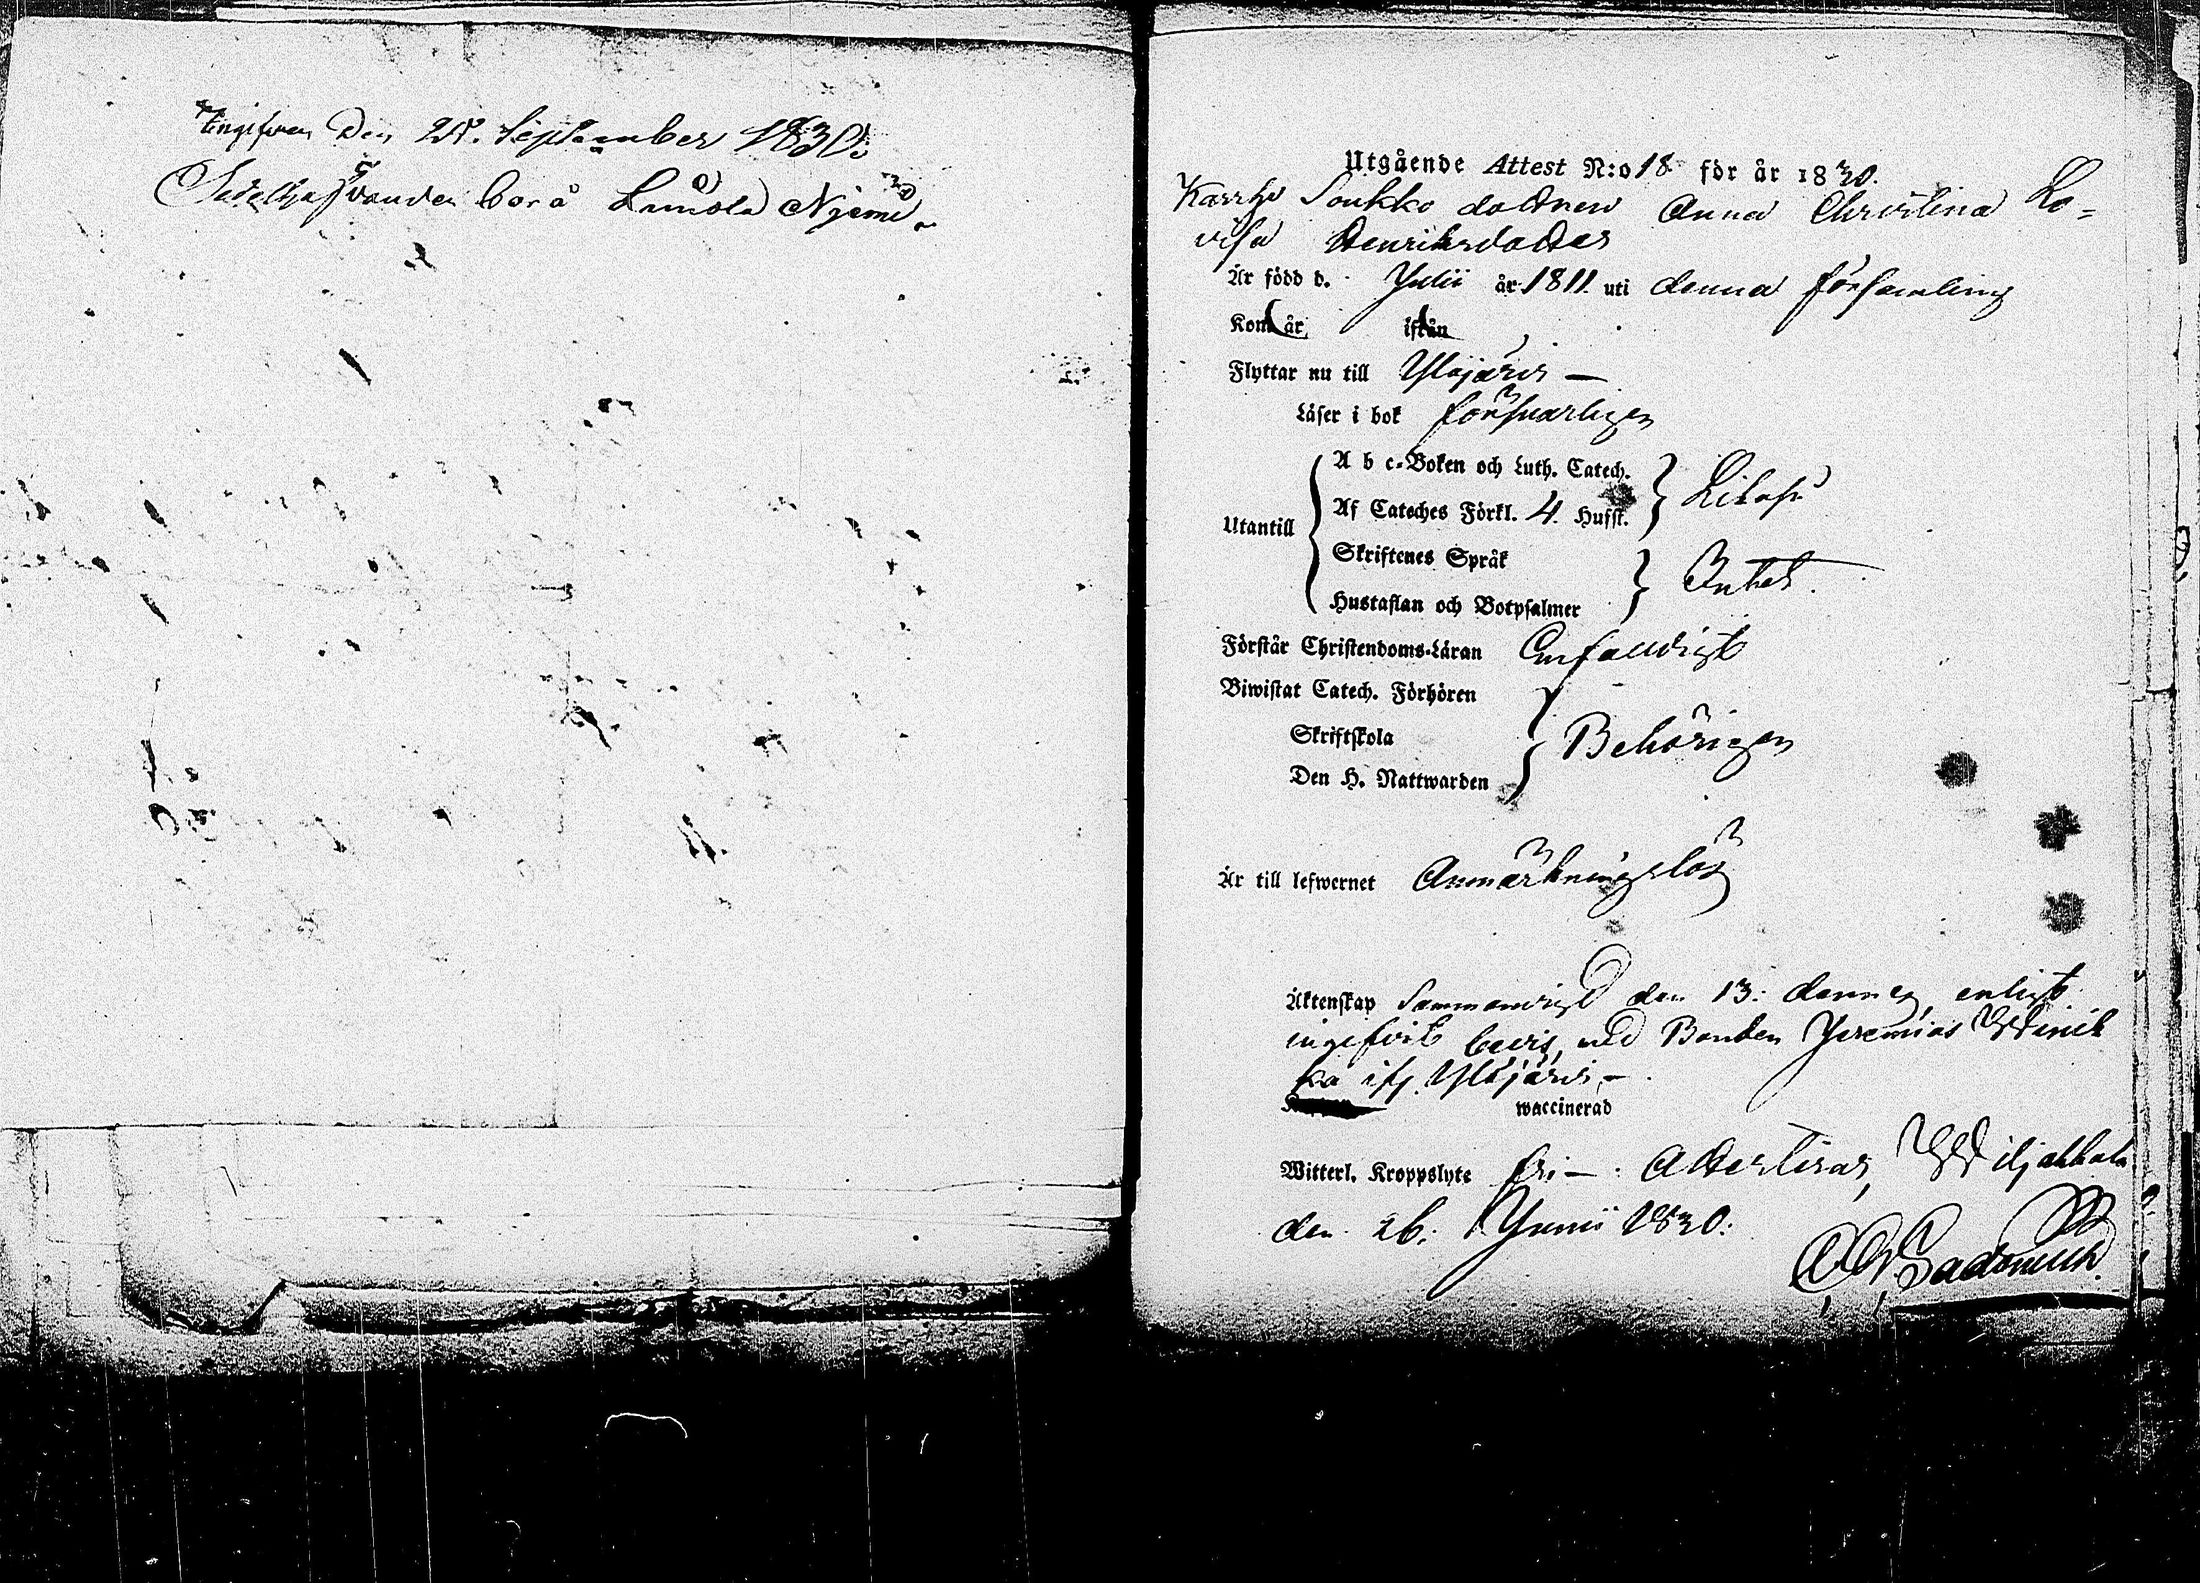 Ingifven Den 21. September 1830.
Sedelhafvanden bor å Lamola Njemi
Utgående Attest N:o 18. för år 1830.
Karrho Soukko dottren Anna Christina Lo=
visa Henriksdotter
Är född d. Julii år 1811. uti denna församling
Kom år ifrån
Flyttar nu till Ylöjärvi —
Läser i bok försvarligen
Utantill
A b c-Boken och Luth. Catech.
Af Cateches Förkl. 4. Hufst.
Likaså
Skriftenes Språk
Hustaflan och Botpsalmer
Intet.
Förstår Christendoms-Läran Enfaldigt
Biwistat Catech. Förhören
Skriftskola
Den H. Nattwarden
Behörigen
Är till lefwernet Anmärkningslös
Äktenskap Sammanvigd den 13: dennes, enligt
ingifvit bevis, med Bonden Jeremias
ka ifr. Ylöjärvi. —
waccinerad
Witterl. Kroppslyte fri —. Attesteras, Wiljakkala
den 26. Junii 1830.